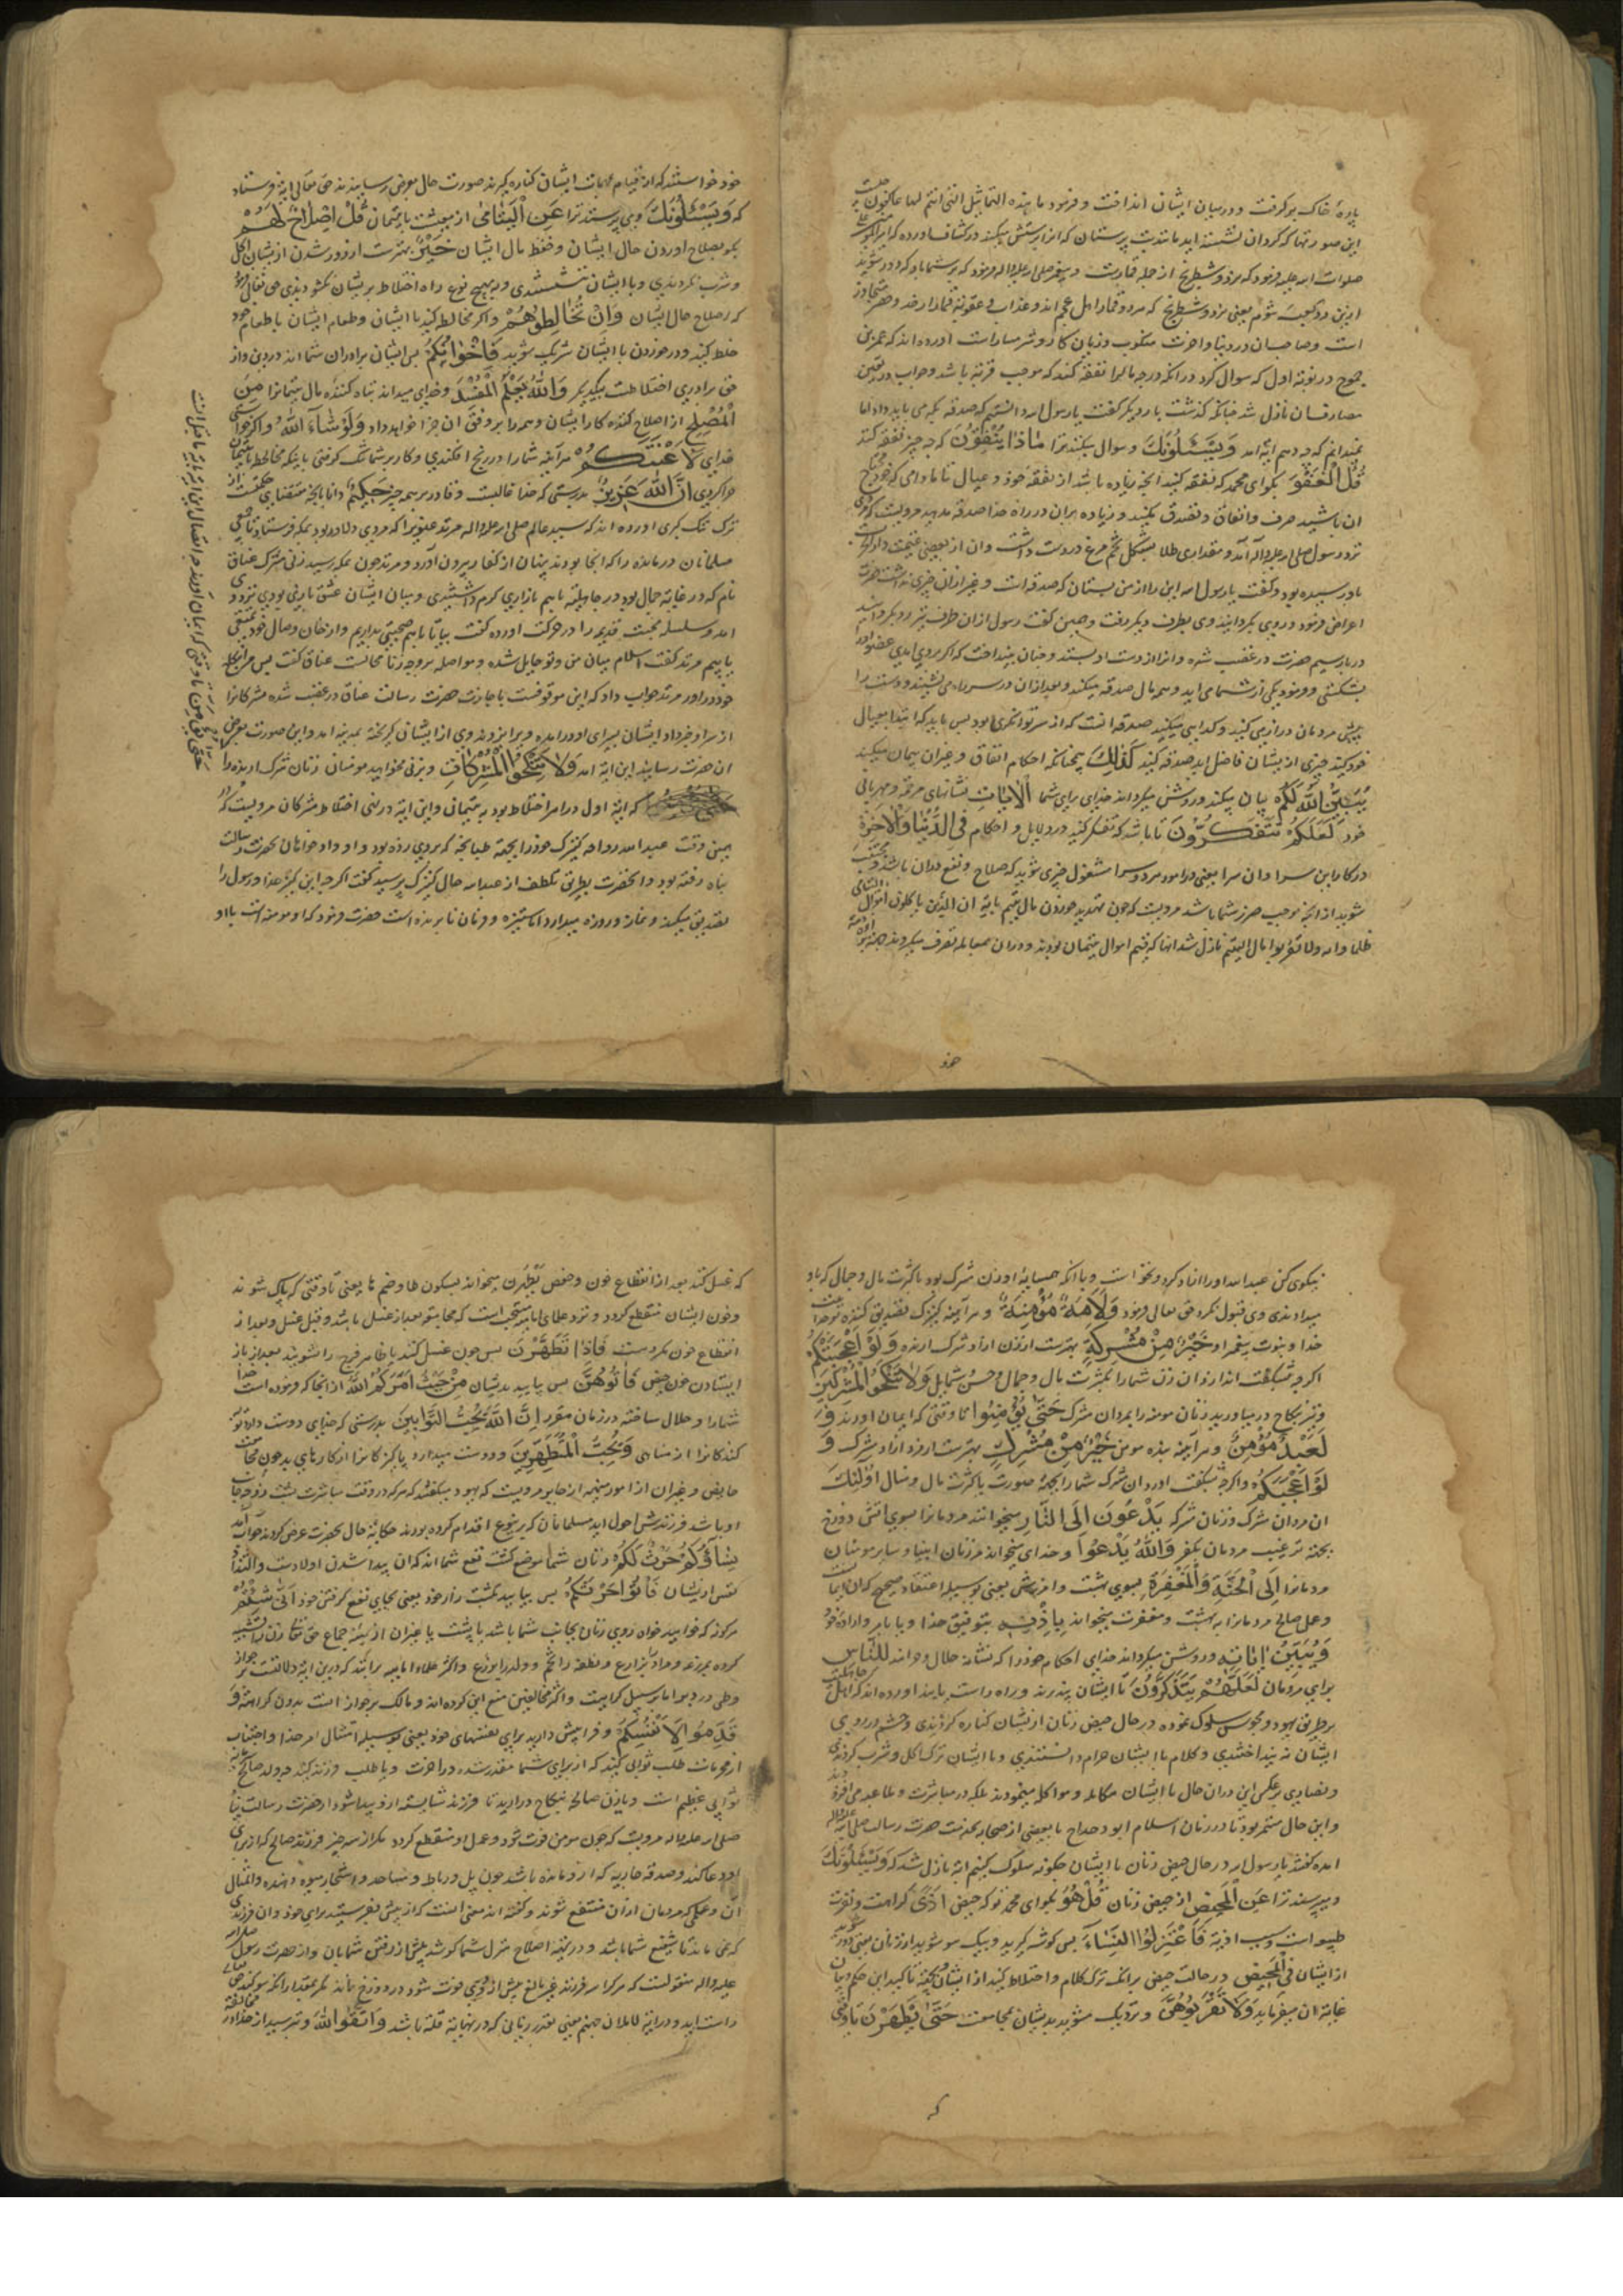 پارهٔ خاک برگرفت و در میان ایشان انداخت و فرمود ما هذه التماثیل التی انتم لها عاکفون چیست
این صورتها که گرد آن نشسته‌اید مانند بت پرستان که آنرا پرستش میکنند در کشاف آورده که امیرالمومنین علی
صلوات الله علیه فرمود که نرد و شطرنج از جمله قمارست و پیغمبر صلی الله علیه و اله فرمود که بر شما باد که دور شوید
ازین دو کعبتَ شوم یعنی نرد و شطرنج که هر دو قمار اهل عجم‌اند
است و صاحبان در دنیا و آخرت منکوب و زیان کار و شرمسار است آورده‌اند که عمرو بن
جموح در نوبهٔ اول که سوال کرد در آنکه در چه مال نفقه کند که موجب قربة باشد و جواب در تعیین
مصارف آن نازل شد چنانکه گذشت بار دیگر گفت یا رسول الله دانستم که صدقه بکه می باید داد اما
نمیدانم که چه دهم ایه آمد وَیَسْئَلُونَكَ و سوال میکنند ترا مٰاذا یُنْفِقُونَ که چه چیز نفقه کنند
قُلِ الْعَفْوَ بگو ای محمد که نفقه کنید آنچه زیاده باشد از نفقه خود و عیال تا مادامی که خود محتاج
آن باشید صرف و انفاق و تصدق بکنید و زیاده بر آن در راه خدا صدقه بدهید مرویست که مردی
نزد رسول صلی الله علیه و اله آمد و مقداری طلا بشکل تخم مرغ در دست داشت و آن از بعضی غنیمت
بدو رسیده بود و گفت یا رسول الله این را از من بستان که صدقه است و غیر از آن چیزی نداشت حضرت
اعراض فرمود و روی بگردانید وی بطرف دیگر رفت و همین گفت رسول از آن طرف نیز رو بگردانید
در بار سیم حضرت در غضب شده و آنرا از دست او بستد و چنان بینداخت که اگر بر وی آمدی عضو او را
بشکستی و فرمود یکی از شما می آید و همه مال صدقه میکند و بعد از آن در سر راه می نشیند و دست را
پیش مردمان دراز می کنید و گدایی میکنید صدقه آنست که از سر توانگری بود پس باید که ابتدا بعیال
خود کنید چیزی از یشان فاضل آید صدقه کنید کَذٰلِكَ همچنانکه احکام انفاق و غیر آن بیان میکند
یُبَیِّنُ اللّٰهُ لَكُمُ بیان میکند و روشن میگرداند خدای برای شما الْاٰیٰاتِ نشانهای مرحمة و مهربانی
خود لَعَلَّكُمْ تَتَفَكَّرُونَ تا باشد که تفکر کنید در دلایل و احکام فِی الدُّنْیٰا وَالْاٰخِرَةِ
در کار این سرا و آن سرا یعنی در امور هر دو سرا مشغول چیزی شوید که صلاح و نفع در آن باشد و مجتنب
شوید از آنچه موجب ضرر شما باشد مرویست که چون تهدید خوردن مال یتیم بایهٔ ان الذین یاکلون اموال الیتامی
ظلما و ایه ولا تقربوا مال الیتیم نازل شد آنها که قیم اموال یتیمان بودند و در آن معامله تصرف میکردند
خود
خود خواستند که از قیام مهمات ایشان کناره گیرند صورت حال بعرض رسانیدند حق تعالی ایه فرستاد
که وَیَسْئَلُونَكَ و می پرسند ترا عَنِ الْیَتٰامیٰ از معیشت با یتیمان قُلْ اِصْلٰاحٌ لَهُمْ
بگو بصلاح آوردن حال ایشان و حفظ مال ایشان خَیْرٌ بهترست از دور شدن از یشان اکل
و شرب نکردندی و با ایشان ننشستندی و بهیچ نوع راه اختلاط بریشان نگشودندی حق تعالی فرمود
که اصلاح حال ایشان وَاِنْ تُخٰالِطُوهُمْ و اگر مخالطه کنید با ایشان و طعام ایشان با طعام خود
خلط کنید و در خوردن با ایشان شریک شوید فَاِخْوٰانُكُمْ پس ایشان برادران شما اند در دین و از
حق برادری اختلاطست بیکدیگر وَاللّٰهُ یَعْلَمُ الْمُفْسِدَ و خدای میداند تباه کننده مال یتیمانرا مِنَ
الْمُصْلِحِ از اصلاح کننده کار ایشان و همه را بر وفق آن جزا خواهد داد وَلَوْ شٰآءَ اللّٰهُ و اگر خواستی
خدای لَاَعْنَتَكُمْ هرآینه شما را در رنج افکندی و کار بر شما تنک گرفتی باینکه مخالطه با یتیمان
حرام کردی اِنَّ اللّٰهَ عَزِیزٌ بدرستی که خدا غالبست و قادر بر همه چیز حَكِیمٌ دانا بآنچه مقتضای حکمتست از
ترک تنک گیری آورده اند که سید عالم صلی الله علیه و اله مرثد غنوی را که مردی دلاور بود بمکه فرستاد تا بعضی
مسلمانان درمانده را که آنجا بودند پنهان از کفار بیرون آورد و مرثد چون بمکه رسید زنی مشرکه عناق
نام که در غایه جمال بود در جاهلیّه با هم بازاری گرم داشتندی و میان ایشان عشق بازی بودی نزد وی
آمد و سلسله محبت قدیم را در حرکت آورده گفت بیا تا با هم صحبتی بداریم و از خان وصال خود تمتعی
یابیم مرثد گفت اسلام میان من و تو حایل شده و مواصله بر وجه زنا محالست عناق گفت پس مرا بنکاح
خود درآور مرثد جواب داد که این موقوفست باجازت حضرت رسالت عناق در غضب شده مشرکانرا
از سر او خبر داد ایشان بسرای او درآمده ویرا بزدند وی از ایشان گریخته بمدینه آمد و این صورت بعرض
آن حضرت رسانید این ایه آمد وَلٰا تَنْكِحُوا الْمُشْرِكٰاتِ و بزنی مخواهید مومنان زنان شرک آرنده را
که ایهٔ اول در امر اختلاط بود به یتیمان و این ایه در نهی اختلاط مشرکان مرویست که
بمن وقت عبدالله رواحه کنیزک خود را بجهة طپانچه که بر وی زده بود و او دادخواهان بحضرت رسالت
پناه رفته بود و آنحضرت بطریق تلطف از عبدالله حال کنیزک پرسید گفت اگر چه این کنیزک خدا و رسول را
تصدیق میکند و نماز و روزه میدارد اما ستیزه و فرمان نا برنده است حضرت فرمود که او مومنه است با او
نیکوی کن عبدالله او را آزاد کرد و بخواست و با آنکه همسایهٔ او زن مشرک بود با کثرت مال و جمال که باو
میدادندی وی قبول نکرد حق تعالی فرمود وَلَاَمَةٌ مُؤْمِنَةٌ و هرآینه کنیزک تصدیق کننده بوحدانیت
خدا و نبوت پیغمبر او خَیْرٌ مِنْ مُشْرِكَةٍ بهترست از زن آزاد شرک آرنده وَلَوْ اَعْجَبَتْكُمْ
اگر چه بشگفت اندازد آن زن شما را بکثرت مال و جمال و حُسن شمایل وَلٰا تُنْكِحُوا الْمُشْرِكِینَ
و نیز بنکاح درمیاورید زنان مومنه را بمردان مشرک حَتّٰی یُؤْمِنُوا تا وقتی که ایمان آورند وَ
لَعَبْدٌ مُؤْمِنٌ و هرآینه بنده مومن خَیْرٌ مِنْ مُشْرِكٍ بهترست از مرد آزاد مشرک وَ
لَوْ اَعْجَبَكُمْ و اگر چه بشگفت آورد آن مشرک شما را بجهة صورت یا کثرت مال و منال اُولٰئِكَ
آن مردان مشرک و زنان مشرکه یَدْعُونَ اِلَی النّٰارِ میخوانند مردمانرا بسوی آتش دوزخ
بجهة ترغیب مردمان بکفر وَاللّٰهُ یَدْعُوا و خدای میخواند مر زنان انبیا و سایر مومنان
مردمانرا اِلَی الْجَنَّةِ وَالْمَغْفِرَةِ بسوی بهشت و آمرزش یعنی بوسیله اعتقاد صحیح که آن ایمانست
و عمل صالح مردمانرا به بهشت و مغفرت میخواند بِاِذْنِهِ بتوفیق خدا و یا بامر و اراده خود
وَیُبَیِّنُ اٰیٰاتِهِ و روشن میگرداند خدای احکام خود را که نشانه حلال و حرامند لِلنّٰاسِ
برای مردمان لَعَلَّهُمْ یَتَذَكَّرُونَ تا ایشان پند پذیرند و راه راست یابند آورده اند که اهل جاهلیت
بر طریق یهود و مجوس سلوک نموده در حال حیض زنان ازیشان کناره کردندی و چشم در روی
ایشان نه نینداختندی و کلام با ایشان حرام دانستندی و با ایشان ترک اکل و شرب کردندی
و نصاری بر عکس این در آن حال با ایشان مکالمه و مواکله مینمودند بلکه در مباشرت و ملاعبه می افزودند
و این حال مستمر بود تا در زمان اسلام ابو دحداح با بعضی از صحابه بخدمت حضرت رسالت صلی الله علیه و اله
آمده گفتند یا رسول الله در حال حیض زنان با ایشان چگونه سلوک کنیم ایه نازل شد که وَیَسْئَلُونَكَ
و میپرسند ترا عَنِ الْمَحِیضِ از حیض زنان قُلْ هُوَ بگو ای محمد که حیض اَذًی کراهت و نفرت
طبع است و سبب اذیة فَاعْتَزِلُوا النِّسٰآءَ پس گوشه گیرید و بیک سو شوید از زنان یعنی دور شوید
از ایشان فِی الْمَحِیضِ در حالت حیض نه آنکه ترک کلام و اختلاط کنید از ایشان بجهة تاکید این حکم و بیان
غایة آن میفرماید وَلٰا تَقْرَبُوهُنَّ و نزدیک مشوید بدیشان بمجامعت حَتّٰی یَطْهُرْنَ تا وقتی
که
که غسل کنند بعد از انقطاع خون و حفص یَطْهُرن میخواند بسکون طا و ضم ها یعنی تا وقتی که پاک شوند
و خون ایشان منقطع گردد و نزد علمای امامیه مستحب است که مجامعة بعد از غسل باشد و قبل غسل و بعد از
انقطاع خون مکروهست فَاِذٰا تَطَهَّرْنَ پس چون غسل کنند یا ظاهر فرج را شویند بعد از باز
ایستادن خون حیض فَاْتُوهُنَّ پس بیایید بدیشان مِنْ حَیْثُ اَمَرَكُمُ اللّٰهُ از آنجا که فرموده است خدا
شما را و حلال ساخته در زمان مقرر اِنَّ اللّٰهَ یُحِبُّ التَّوّٰابِینَ بدرستی که خدای دوست دارد توبه
کنندکانرا از مناهی وَیُحِبُّ الْمُتَطَهِّرِینَ و دوست میدارد پاکیزگانرا از کارهای بد چون مجامعت
حایض و غیر آن از امور منهیه از جابر مرویست که یهود میگفتند که هر که در وقت مباشرت پشت زن بجانب
او باشد فرزندش احول آید مسلمانان که برینوع اقدام کرده بودند حکایة حال بحضرت عرض کردند جواب آمد
نِسٰآؤُكُمْ حَرْثٌ لَكُمْ زنان شما موضع کشت نفع شما اند که آن پیدا شدن اولادست
نفس از یشان فَاْتُوا حَرْثَكُمْ پس بیایید بکشت زار خود یعنی بجای نفع گرفتن خود اَنّٰی شِئْتُمْ
هرگونه که خواهید خواه روی زنان بجانب شما باشد یا پشت یا غیر آن از هیئة جماع حق تعالی زنان را تشبیه
کرده بمزرعه و مرد بزارع و نطفه را بتخم و ولد را بزرع و اکثر علماء امامیه برانند که درین ایه دلالتست بر جواز
وطی در دبر اما بر سبیل کراهیت و اکثر مخالفین منع این کرده اند و مالک بر جواز است بدون کراهت وَ
قَدِّمُوا لِاَنْفُسِكُمْ و فرا پیش دارید برای نفسهای خود یعنی بوسیله امتثال امر خدا و اجتناب
از محرمات طلب ثوابی کنید که از برای شما مقدرست در آخرت و یا طلب فرزند کنید چه ولد صالح
ثوابی عظیم است و یا زن صالحه بنکاح درآرید تا فرزند شایسته ازو پیدا شود از حضرت رسالت پناه
صلی الله علیه و اله مرویست که چون مومن فوت شود و عمل او منقطع گردد مگر از سه چیز فرزند صالح که از برای
او دعا کند و صدقه جاریه که ازو مانده باشد چون پل و رباط و مساجد و اشجار میوه دهنده و امثال
آن و علمی که مردمان از آن منتفع شوند و گفته اند معنی آنست که از پیش بفرستید برای خود آن فرزندی
که نمی ماند تا شفیع شما باشد و در تهیه اصلاح منزل شما کوشد پیش از رفتن شما بآن و از حضرت رسول صلی الله
علیه و اله منقولست که هر که را سه فرزند غیر بالغ پیش از وی فوت شود در دوزخ نماند مگر بمقدار آنکه سوگندی
راست آید و در آیه لاملان جهنم یعنی بقدر زمانی که در نهایة قلة باشد وَاتَّقُوا اللّٰهَ و بترسید از خدا در مخالفت